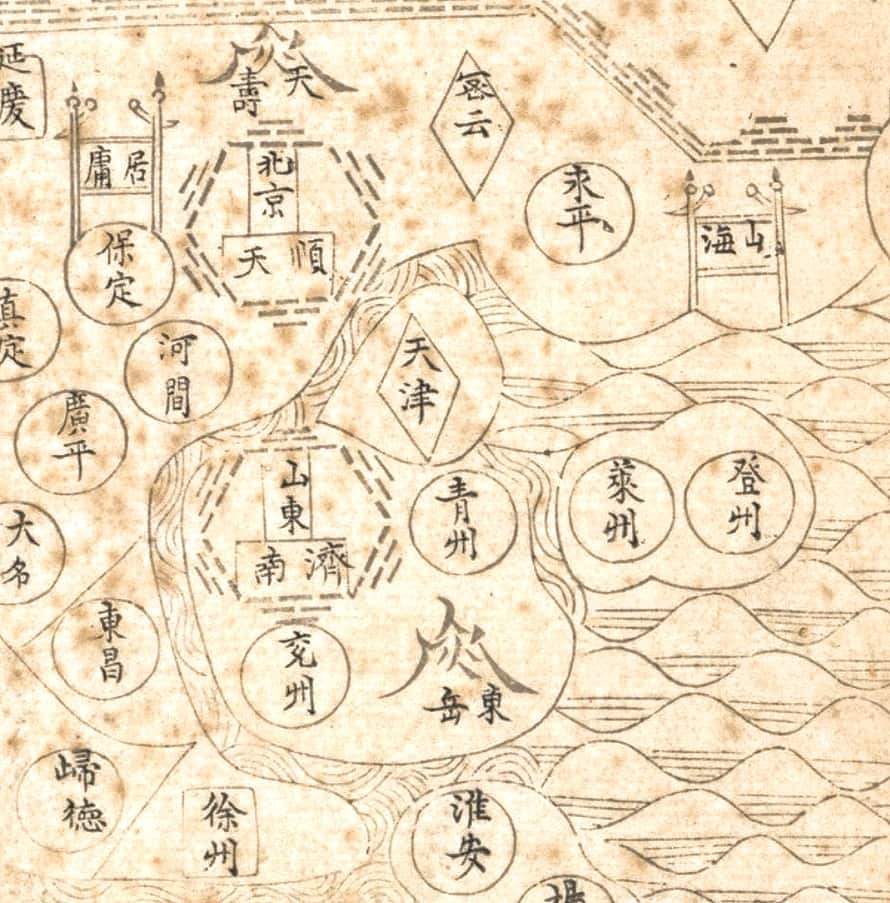 延慶
天壽
密云
居庸
北京
順天
永平
山海
保定
真定
河間
天津
廣平
山東
濟南
青州
萊州
登州
大名
東昌
兗州
東岳
歸德
徐州
淮安